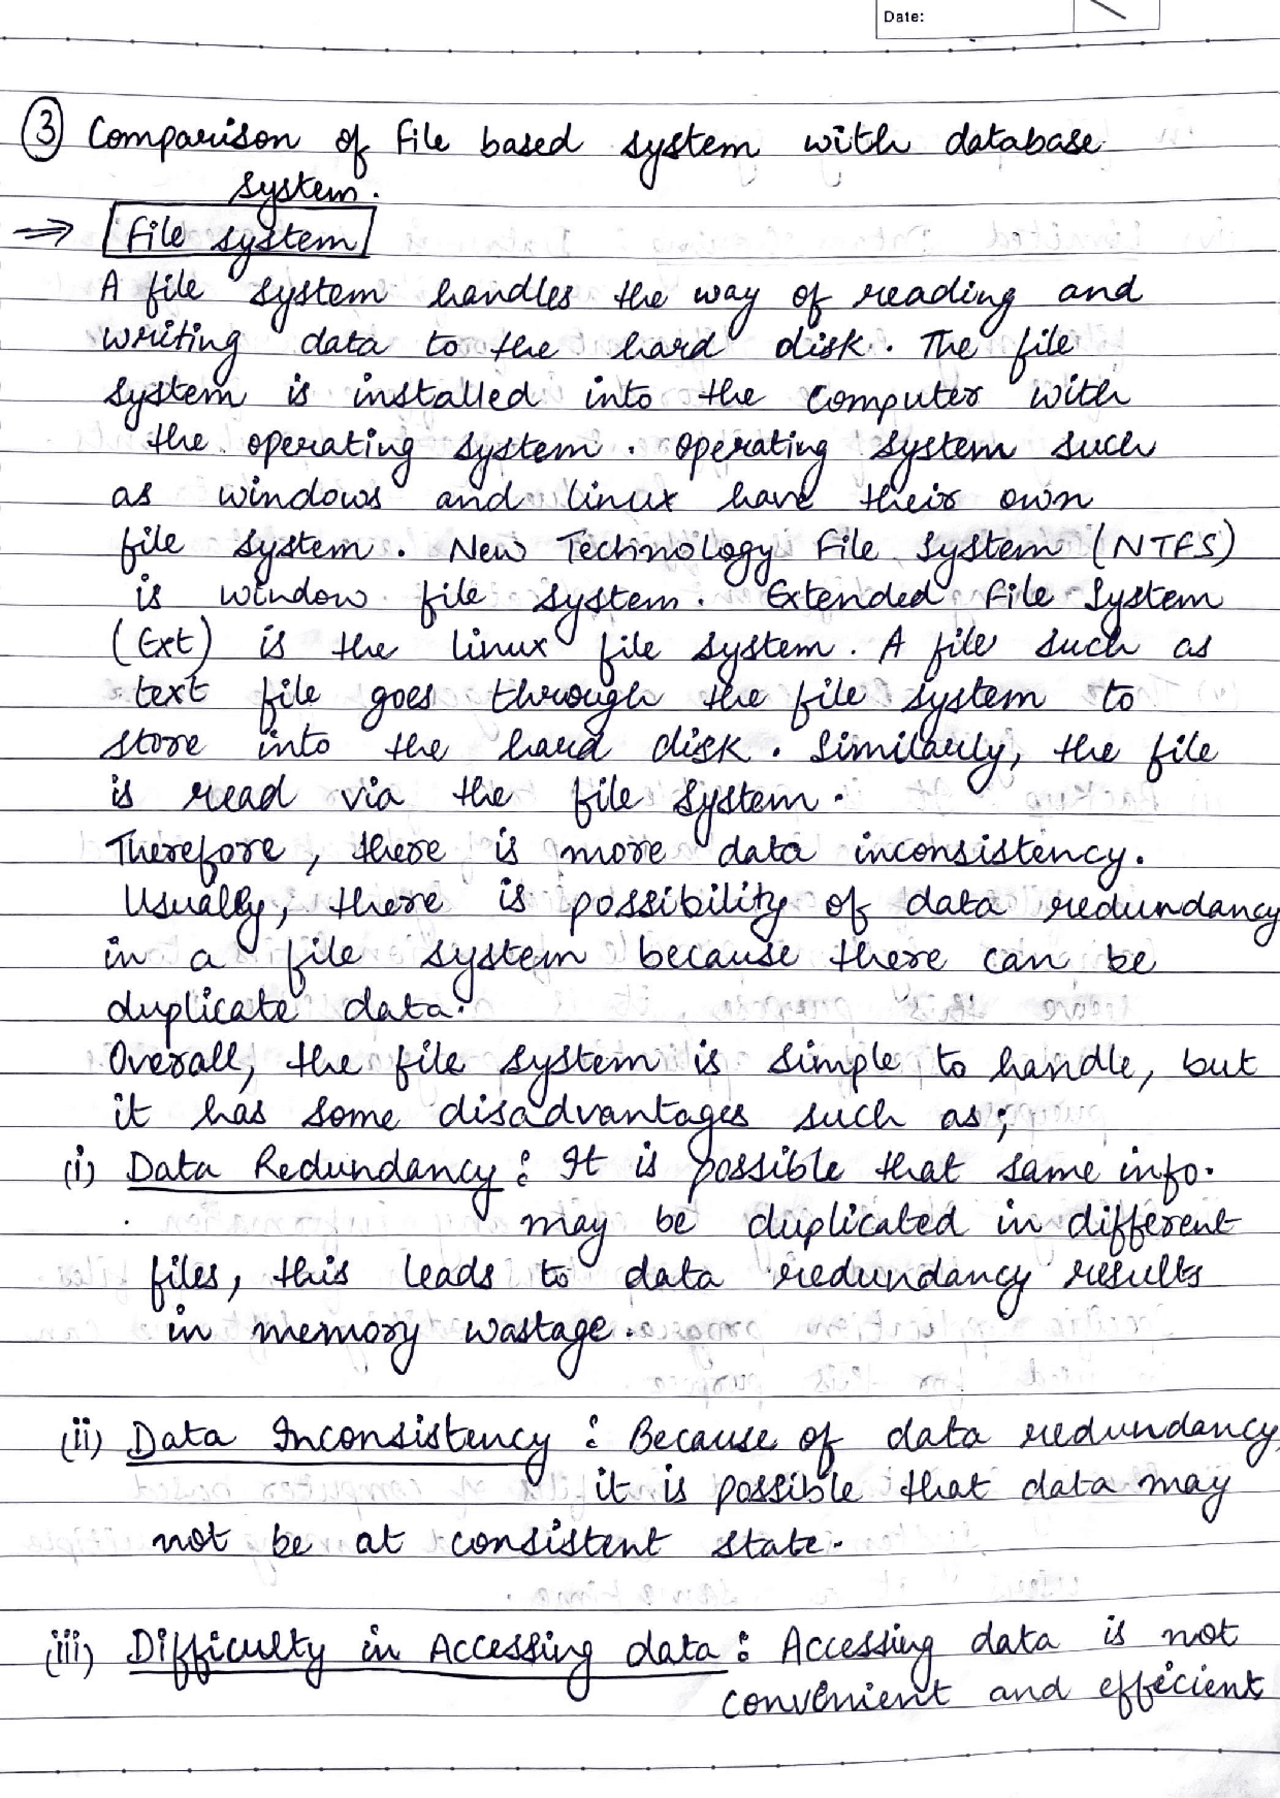 Date:
③ Comparison of file based system with database
system.
⇒ File system
A file system handles the way of reading and
writing data to the hard disk. The file
system is installed into the computer with
the operating system. Operating system such
as windows and linux have their own
file system. New Technology File System (NTFS)
is window file system. Extended File System
(Ext) is the linux file system. A file such as
text file goes through the file system to
store into the hard disk. Similarly, the file
is read via the file system.
Therefore, there is more data inconsistency.
Usually, there is possibility of data redundancy
in a file system because there can be
duplicate data.
Overall, the file system is simple to handle, but
it has some disadvantages such as;
(i) Data Redundancy: It is possible that same info.
may be duplicated in different
files, this leads to data redundancy results
in memory wastage.
(ii) Data Inconsistency: Because of data redundancy,
it is possible that data may
not be at consistent state.
(iii) Difficulty in Accessing data: Accessing data is not
convenient and efficient